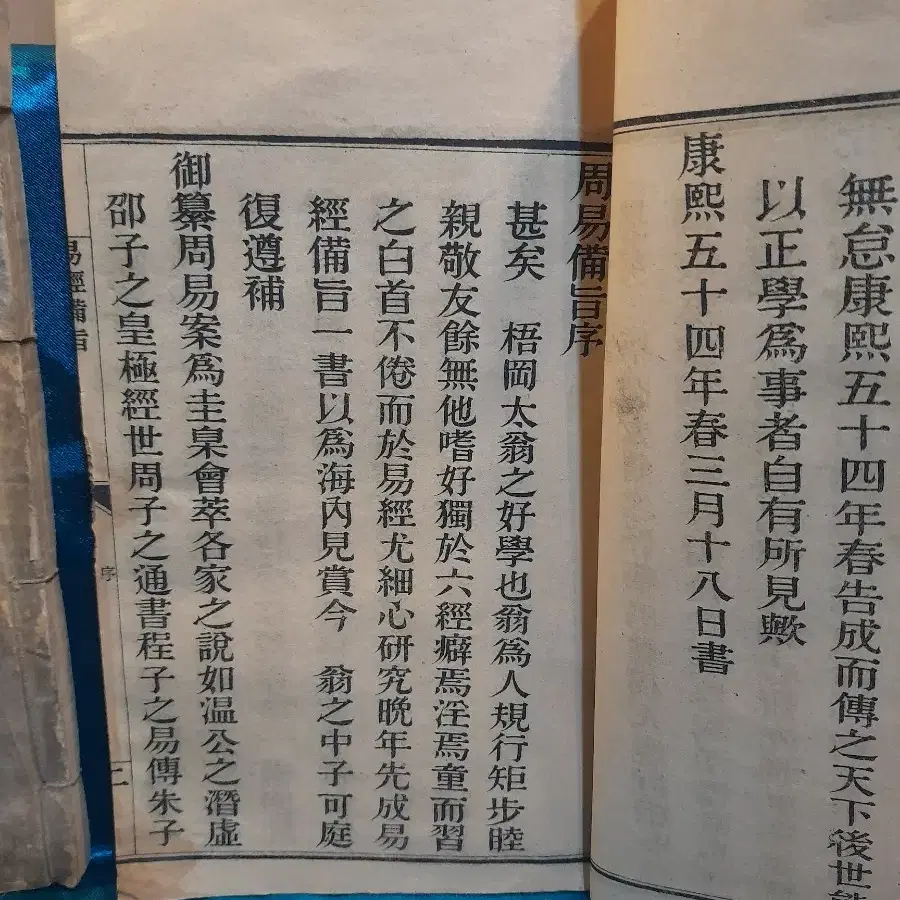 無怠康熙五十四年春告成而傳之天下後世能
以正學爲事者自有所見歟
康熙五十四年春三月十八日書
周易備旨序
甚矣 梧岡太翁之好學也翁爲人規行矩步睦
親敬友餘無他嗜好獨於六經癖焉淫焉童而習
之白首不倦而於易經尤細心研究晚年先成易
經備旨一書以爲海內見賞今 翁之中子可庭
復遵補
御纂周易案爲圭臬會萃各家之說如温公之潛虛
邵子之皇極經世周子之通書程子之易傳朱子
易經備旨
序
二